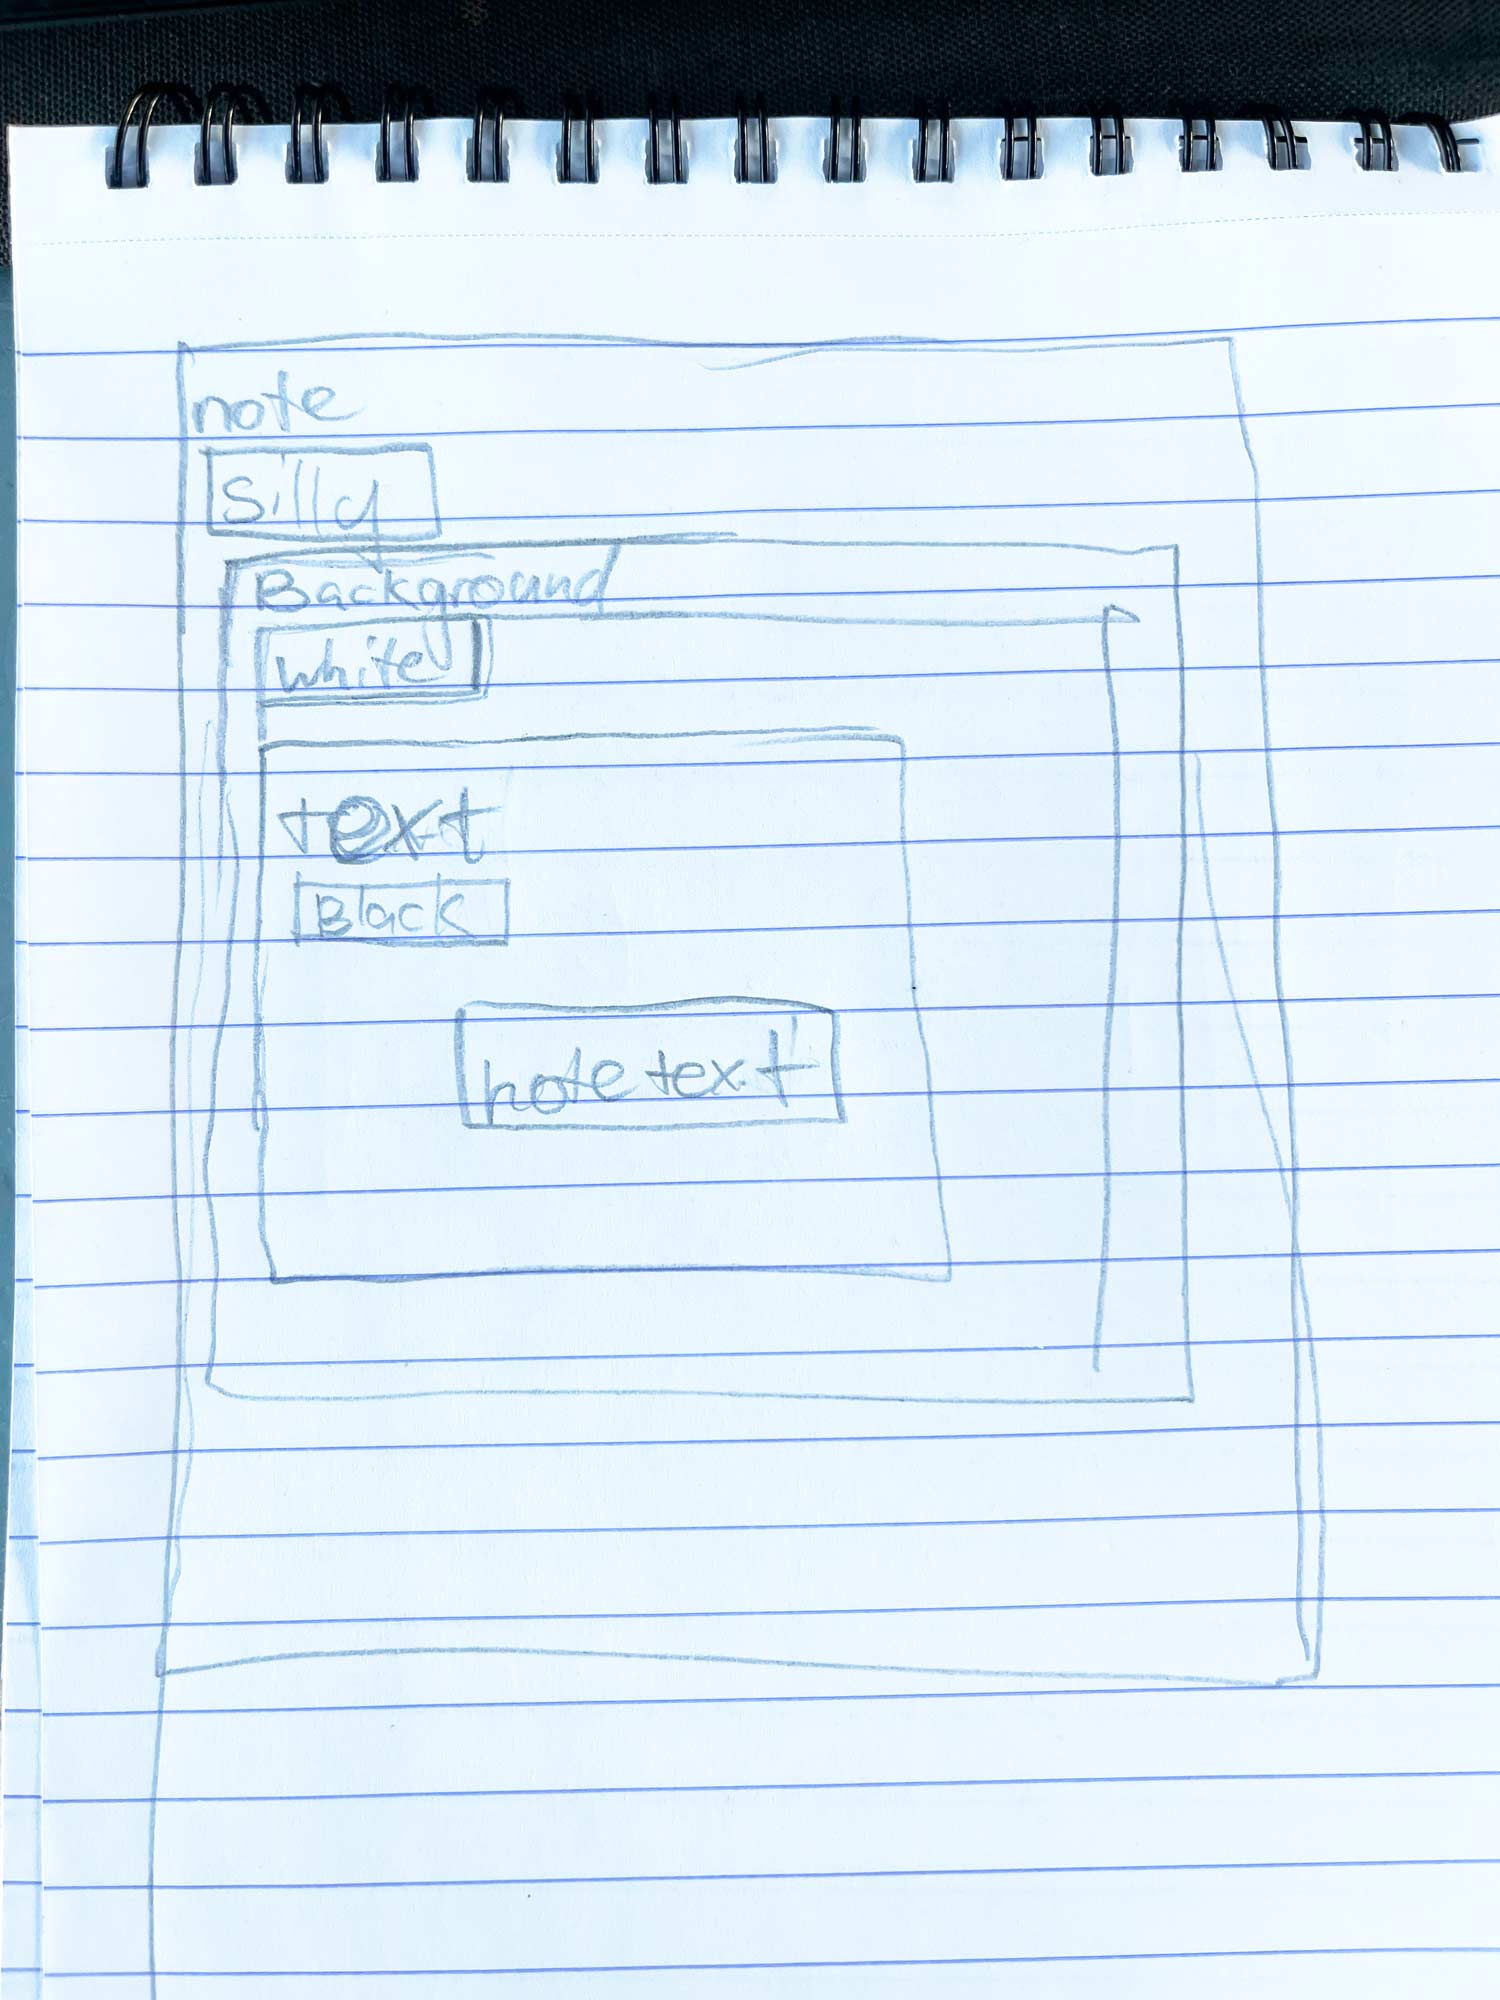 note
Silly
Background
white
text
Black
note text